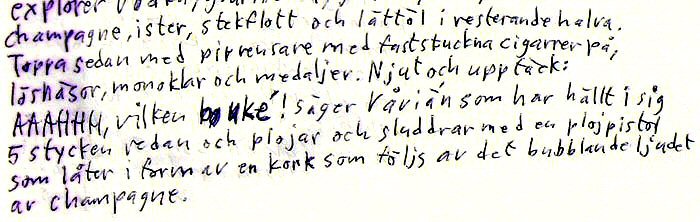 explorer
champagne, ister, stekflott och lättöl i resterande halva.
Toppa sedan med piprensare med faststuckna cigarrer på,
löshäsor, monoklar och medaljer. Njut och upptäck:
AAAHHH, vilken buké! säger Vårián som har hällt i sig
5 stycken redan och plojar och sluddrar med en plojpistol
som låter i form av en kork som följs av det bubblande ljudet
av champagne.